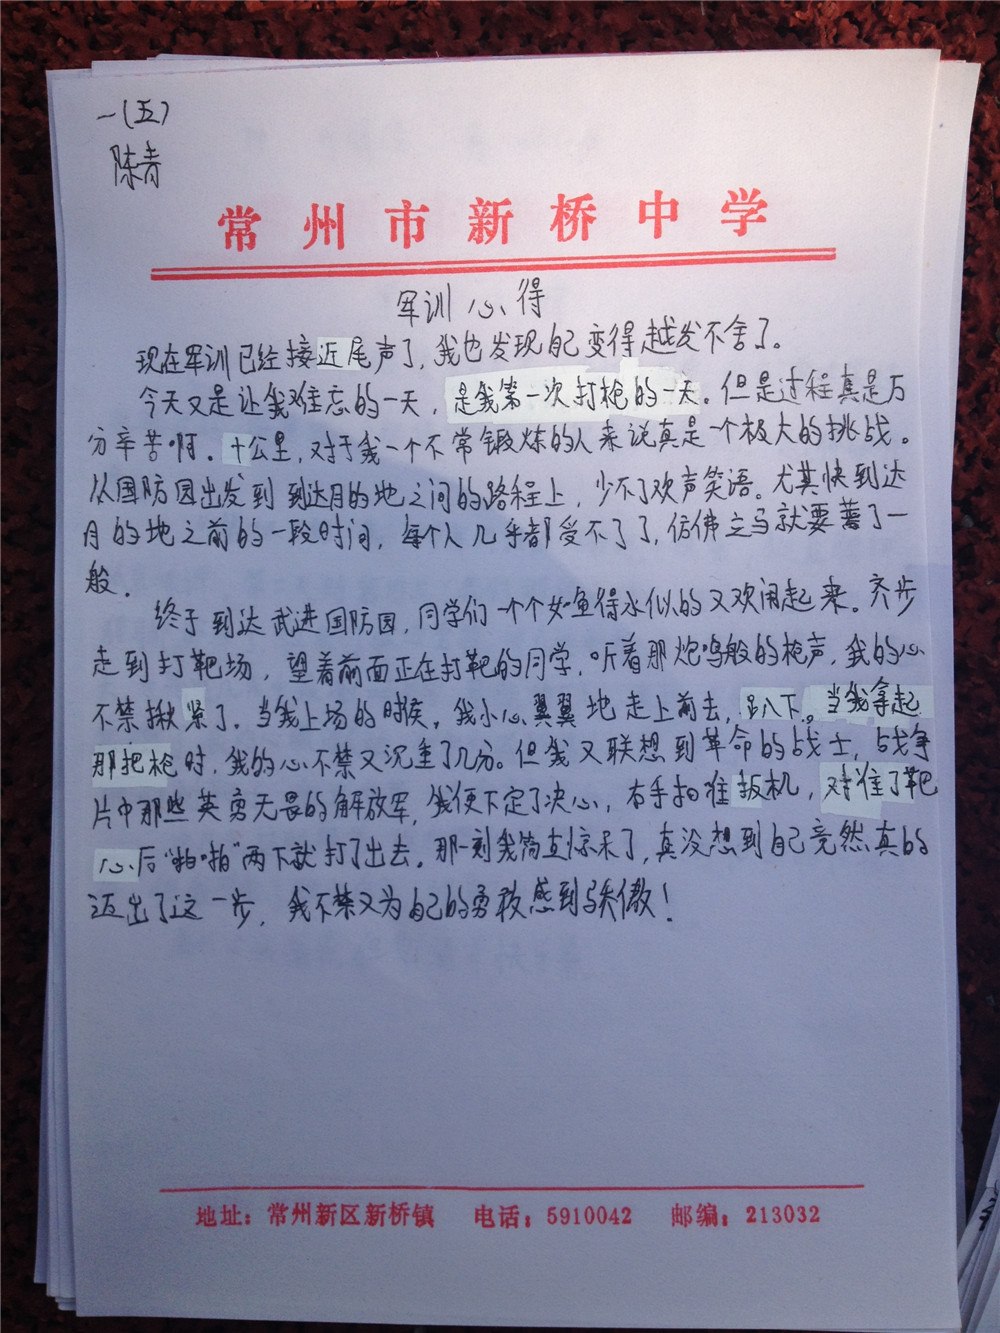 一(五)
陈青
常州市新桥中学
军训心得
现在军训已经接近尾声了,我也发现自己变得越发不舍了。
今天又是让我难忘的一天,是我第一次打枪的一天。但是过程真是万
分辛苦啊。十公里,对于我一个不常锻炼的人来说真是一个极大的挑战。
从国防园出发到到达目的地之间的路程上,少不了欢声笑语。尤其快到达
目的地之前的一段时间,每个人几乎都受不了了,仿佛立马就要薯了一
般.
终于到达武进国防园,同学们一个个如鱼得水似的又欢闹起来。齐步
走到打靶场,望着前面正在打靶的同学,听着那炮鸣般的枪声,我的心
不禁揪紧了。当我上场的时候,我小心翼翼地走上前去,趴下。当我拿起
那把枪时,我的心不禁又沉重了几分。但我又联想到革命的战士,战争
片中那些英勇无畏的解放军,我便下定了决心,右手扣准扳机,对准了靶
心后"啪啪"两下就打了出去。那一刻我简直惊呆了,真没想到自己竟然真的
迈出了这一步,我不禁又为自己的勇敢感到骄傲!
地址:常州新区新桥镇 电话:5910042 邮编:213032